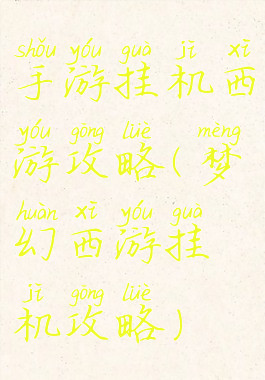 shǒu yóu guà jī xī
手游挂机西
yóu gōng lüè mèng
游攻略(梦
huàn xī yóu guà
幻西游挂
jī gōng lüè
机攻略)